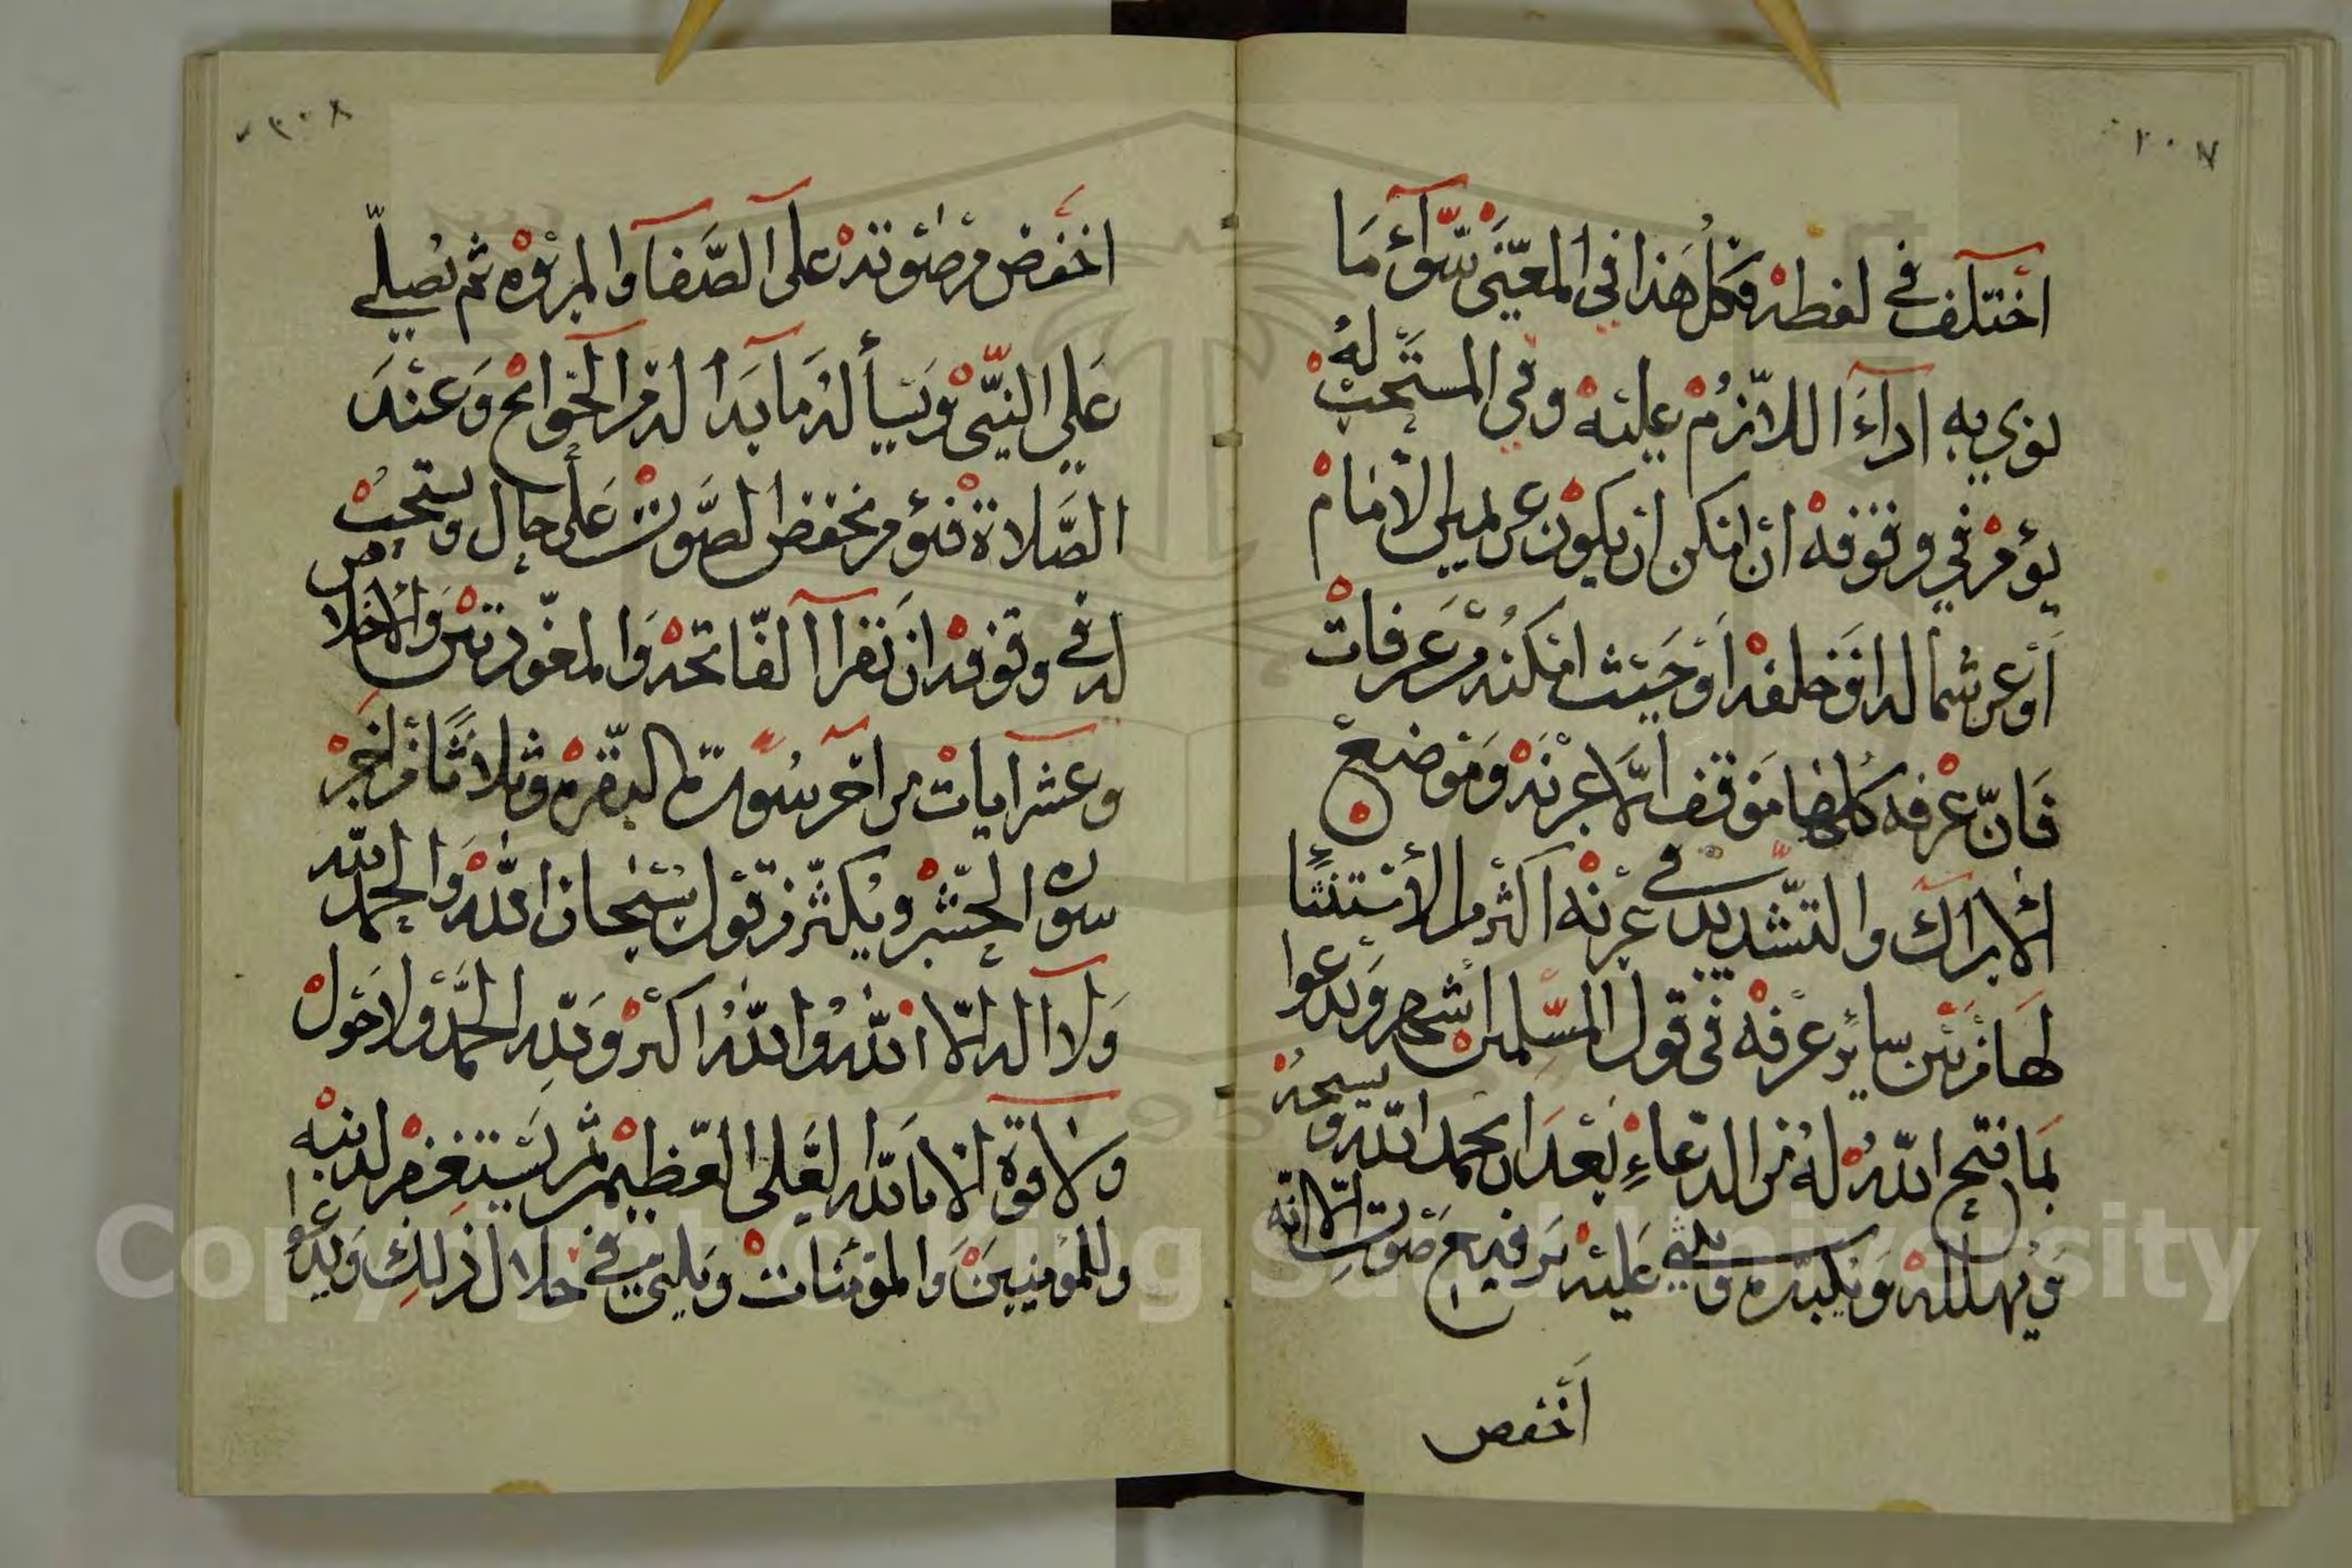 ٢٠٧
اختلف في لفظه وكل هذا في المعنى سوآء ما
نوي به ادآء اللازم عليه وفي المستحب له
يؤمر في وقوفه ان امكن ان يكون عن يمين الامام
أو عن شماله او خلفه او حيث امكنه من عرفات
فان عرفه كلها موقف الا عرنه وموضع
الاراك والتشديد في عرنه اكثر ما الاستثنا
لها من بين ساير عرفه في قول المسلمين اشهر ويدعوا
بما فتح الله له من الدعاء بعد ان يحمد الله ويسبحه
ويهلله ويكبره ويثني عليه برفيع صوت الا انه
أخفض
٢٠٨
اخفض من صوته على الصفا والمروه ثم يصلي
على النبي ويسأله ما بدا له من الحوائج وعند
الصلاة فيؤمر بخفض الصوت على حال ويستحب
له في وقوفه ان يقرا الفاتحه والمعوذتين والاخلاص
وعشر ايات من اخر سورة البقره وثلاثا من اخر
سوره الحشر ويكثر من قول سبحان الله والحمد لله
ولا اله الا الله والله اكبر ولله الحمد ولا حول
ولا قوة الا بالله العلي العظيم ثم يستغفر لذنبه
وللمؤمنين والمؤمنات ويلبي في خلال ذلك ويدعوا
Copyright © King Saud University
195